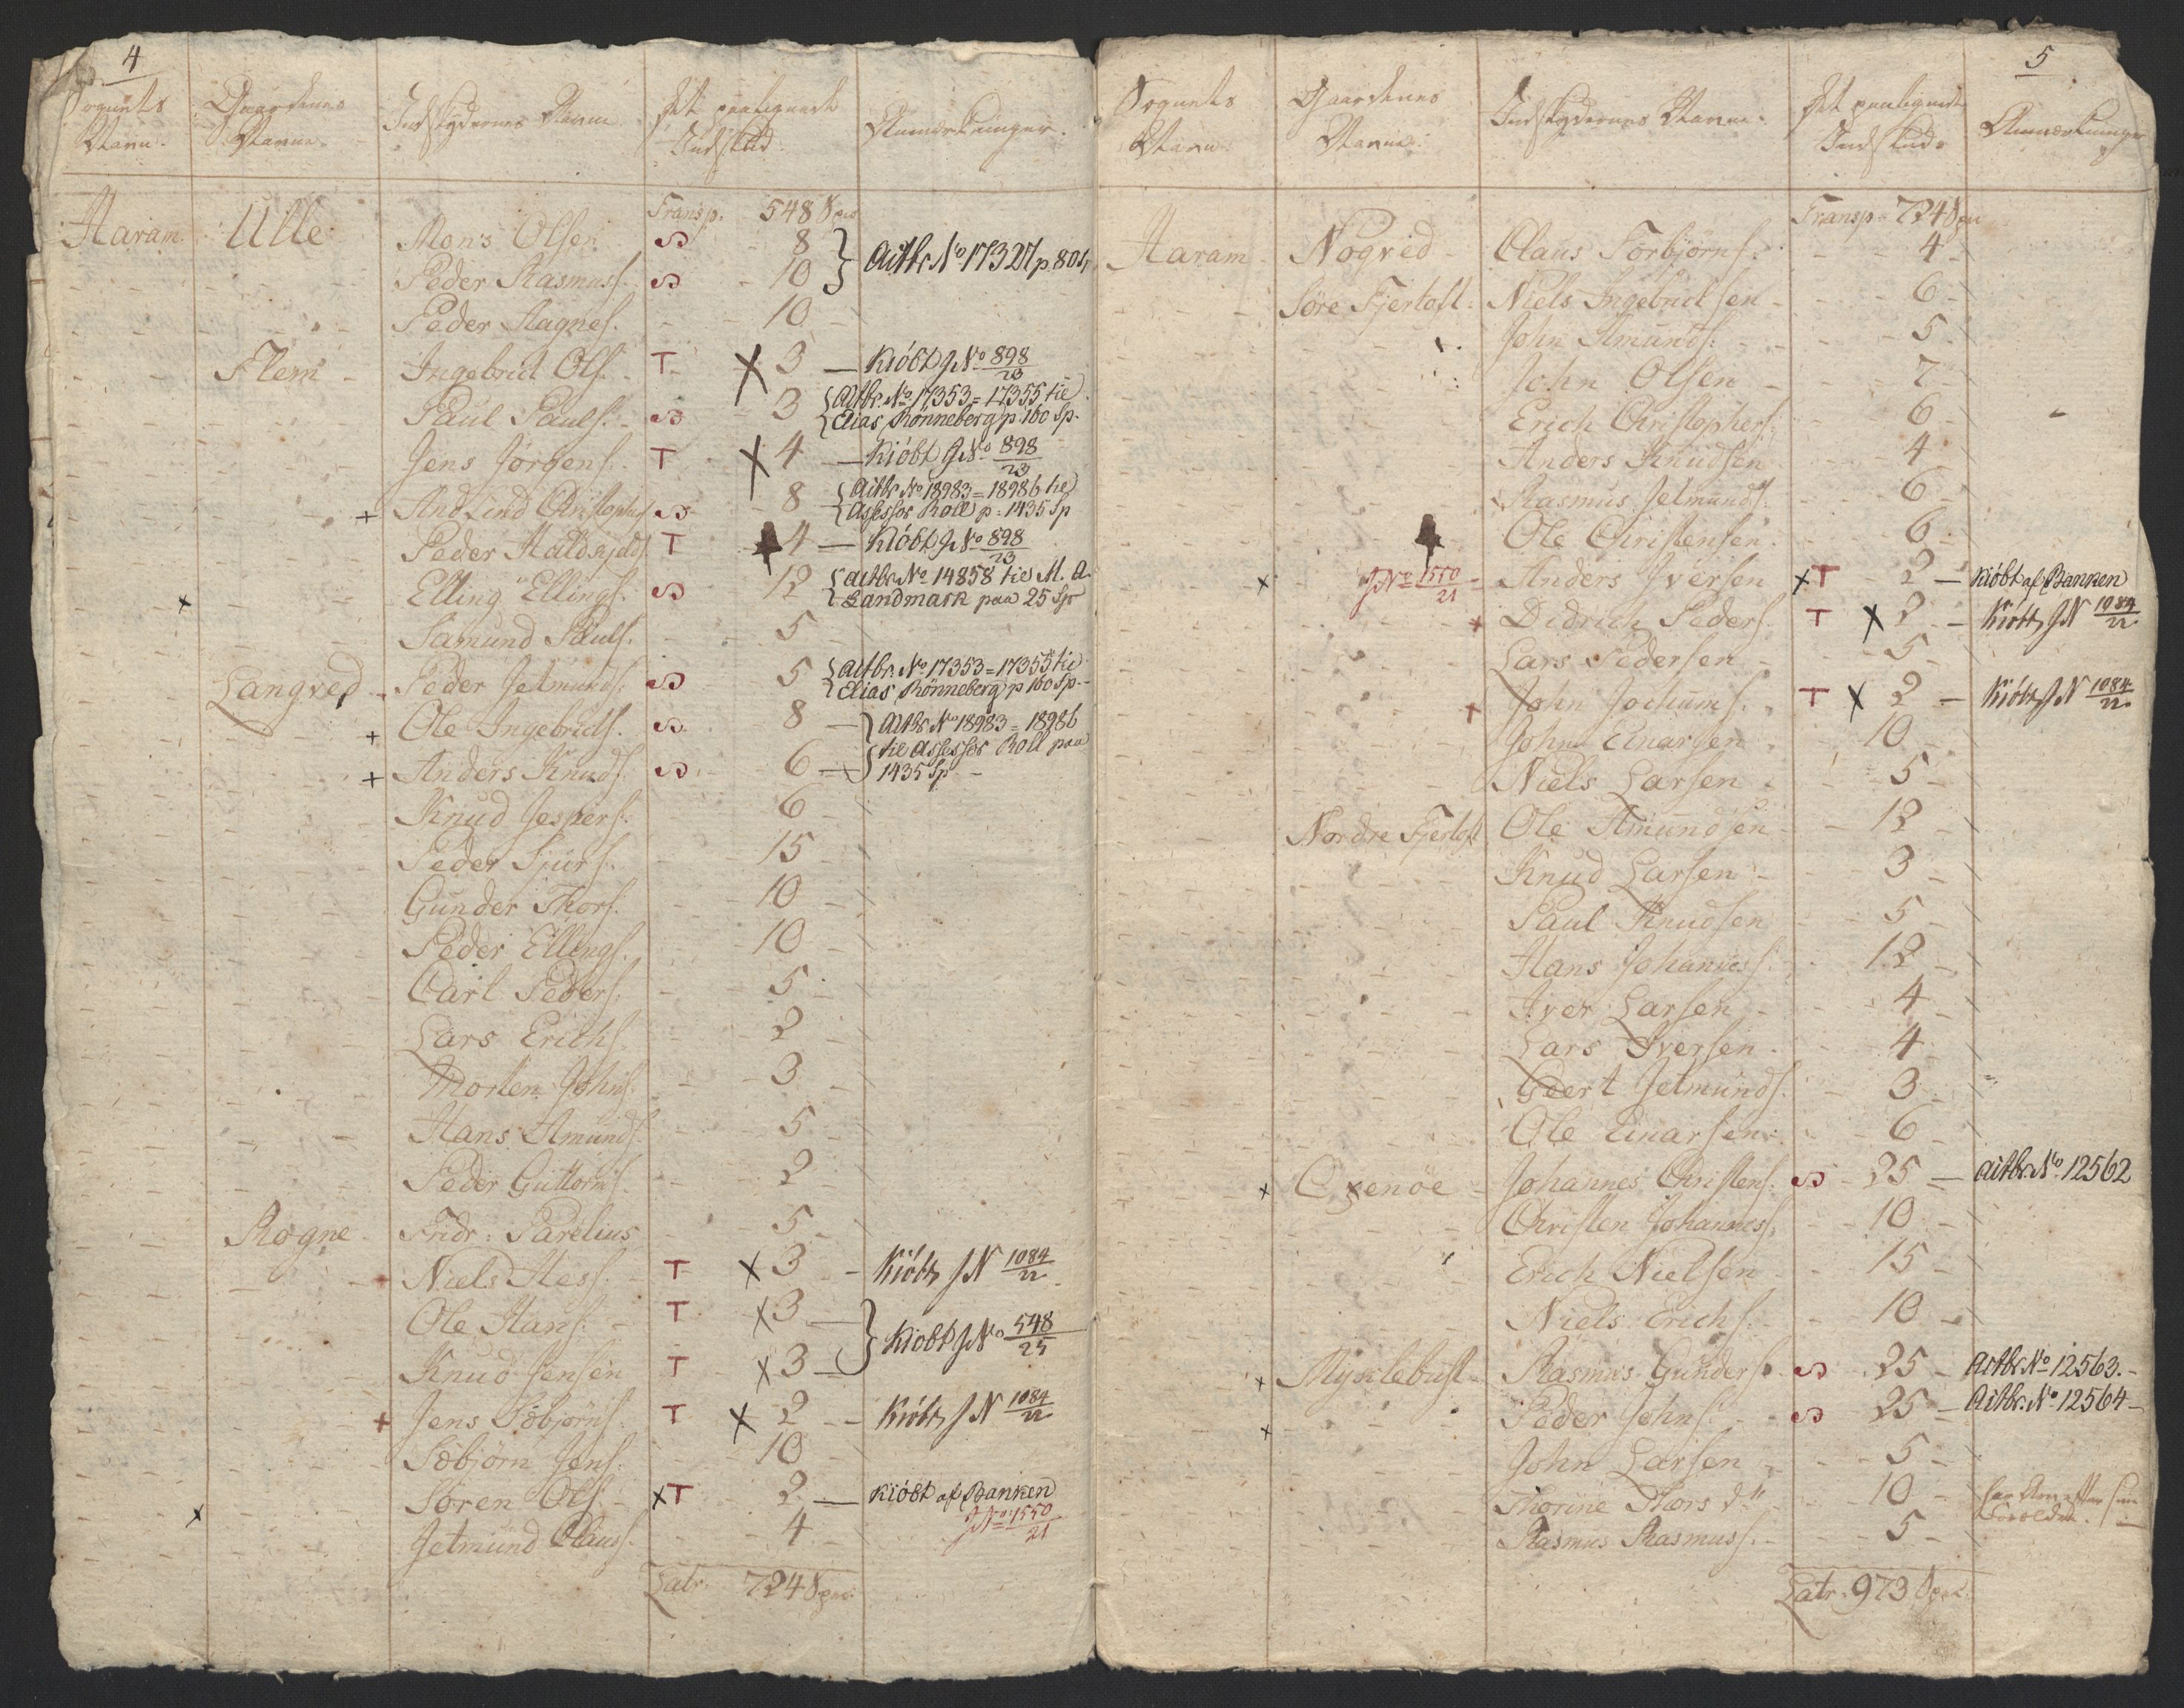 4
Sognets Navn. | Gaardenes Navne. | Indskydernes Navne. | Det paalignede Indskud. | Anmærkninger.
Transp. 548 Spe
Haram. Ulle Mons Olsen S 8 } Actbr. No 17327 p. 80
Peder Rasmuss. S 10
Peder Hagnes. 10
Flem Ingebrict Ols. T X 3 — Kiöbt J No 898/23
Paul Pauls. S 3 { Actbr. No 17353 = 17355 til
Elias Rönneberg p 160 Sp.
Jens Jørgens. T X 4 — Kiöbt J No 898/23
+ And Lind Christophers S 8 { Actbr No 18983 = 18986 til
Assessor Roll p: 1435 Sp
Peder Haldskjelds. T 4 — Kiöbt J No 898/23
x Elling Ellings. S 12 { actbr No 14858 til M. A.
Landmark paa 25 Sp
Samund Pauls. 5
Langved Peder Jetmunds. S 5 { Actbr. No 17353 = 17355 til
Elias Rönneberg p 160 Sp.
+ Ole Ingebricts. S 8 — } Actbr No 18983 = 18986
+ Anders Knuds. S 6 — til Assessor Roll paa
1435 Sp
Knud Jespers. 6
Peder Sjurs. 15
Gunder Thors. 10
Peder Ellings. 10
Carl Peders. 5
Lars Erichs. 2
Morten Johns. 3
Hans Amunds. 5
Peder Guttorms. 2
Rogne Fridr: Parelius 5
+ Niels Hess. T X 3 — Kiöbt J N 1084/22
Ole Hans. T X 3 — } Kiobt J No 548/25
Knud Jensen T X 3 —
+ Jens Sæbjørns. T X 2 — Kiöbt J N 1084/22
Sæbjørn Jens. 10
x Søren Ols. XT 2 — Kiöbt af Banken
J No 1550/21
Jetmund Claus. 4
Latr. 724 Spe

5
Sognets Navn. | Gaardenes Navne. | Indskydernes Navne. | Det paalignede Indskud. | Anmærkninger
Transp. 724 Spe
Haram Nogved Claus Torbjørns. 4
Søre Fjertoft. Niels Ingebrictsen 6
John Amunds. 5
John Olsen 7
Erich Christophers. 6
Anders Knudsen 4
Rasmus Jetmunds. 6
Ole Christensen 6
x J No 1550/21 Anders Iversen XT 2 — Kiöbt af Banken
+ Didrich Peders. T X 2 — Kiöbt J N 1084/22
Lars Pedersen 5
+ John Jochums. T X 2 — Kiöbt J N 1084/22
John Einarsen 10
Niels Larsen 5
Nordre Fjertoft Ole Amundsen 12
Knud Larsen 3
Paul Knudsen 5
Hans Johanness. 12
Iver Larsen 4
Lars Iversen 4
Geert Jetmunds. 3
Ole Einarsen 6
x Oxenöe Johannes Christens. S 25 — actbr. No 12562
Christen Johanness. 10
Erich Nielsen 15
Niels Erichs. 10
x Myklebust Rasmus Gunders. S 25 — Actbr. No 12563.
x Peder Johns. S 25 — Actbr. No 12564
John Larsen 5
Thorine Thors dtr 10
Rasmus Rasmuss. 5
Latr. 973 Spe.